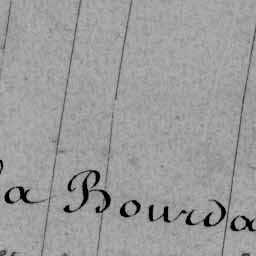 la Bourda